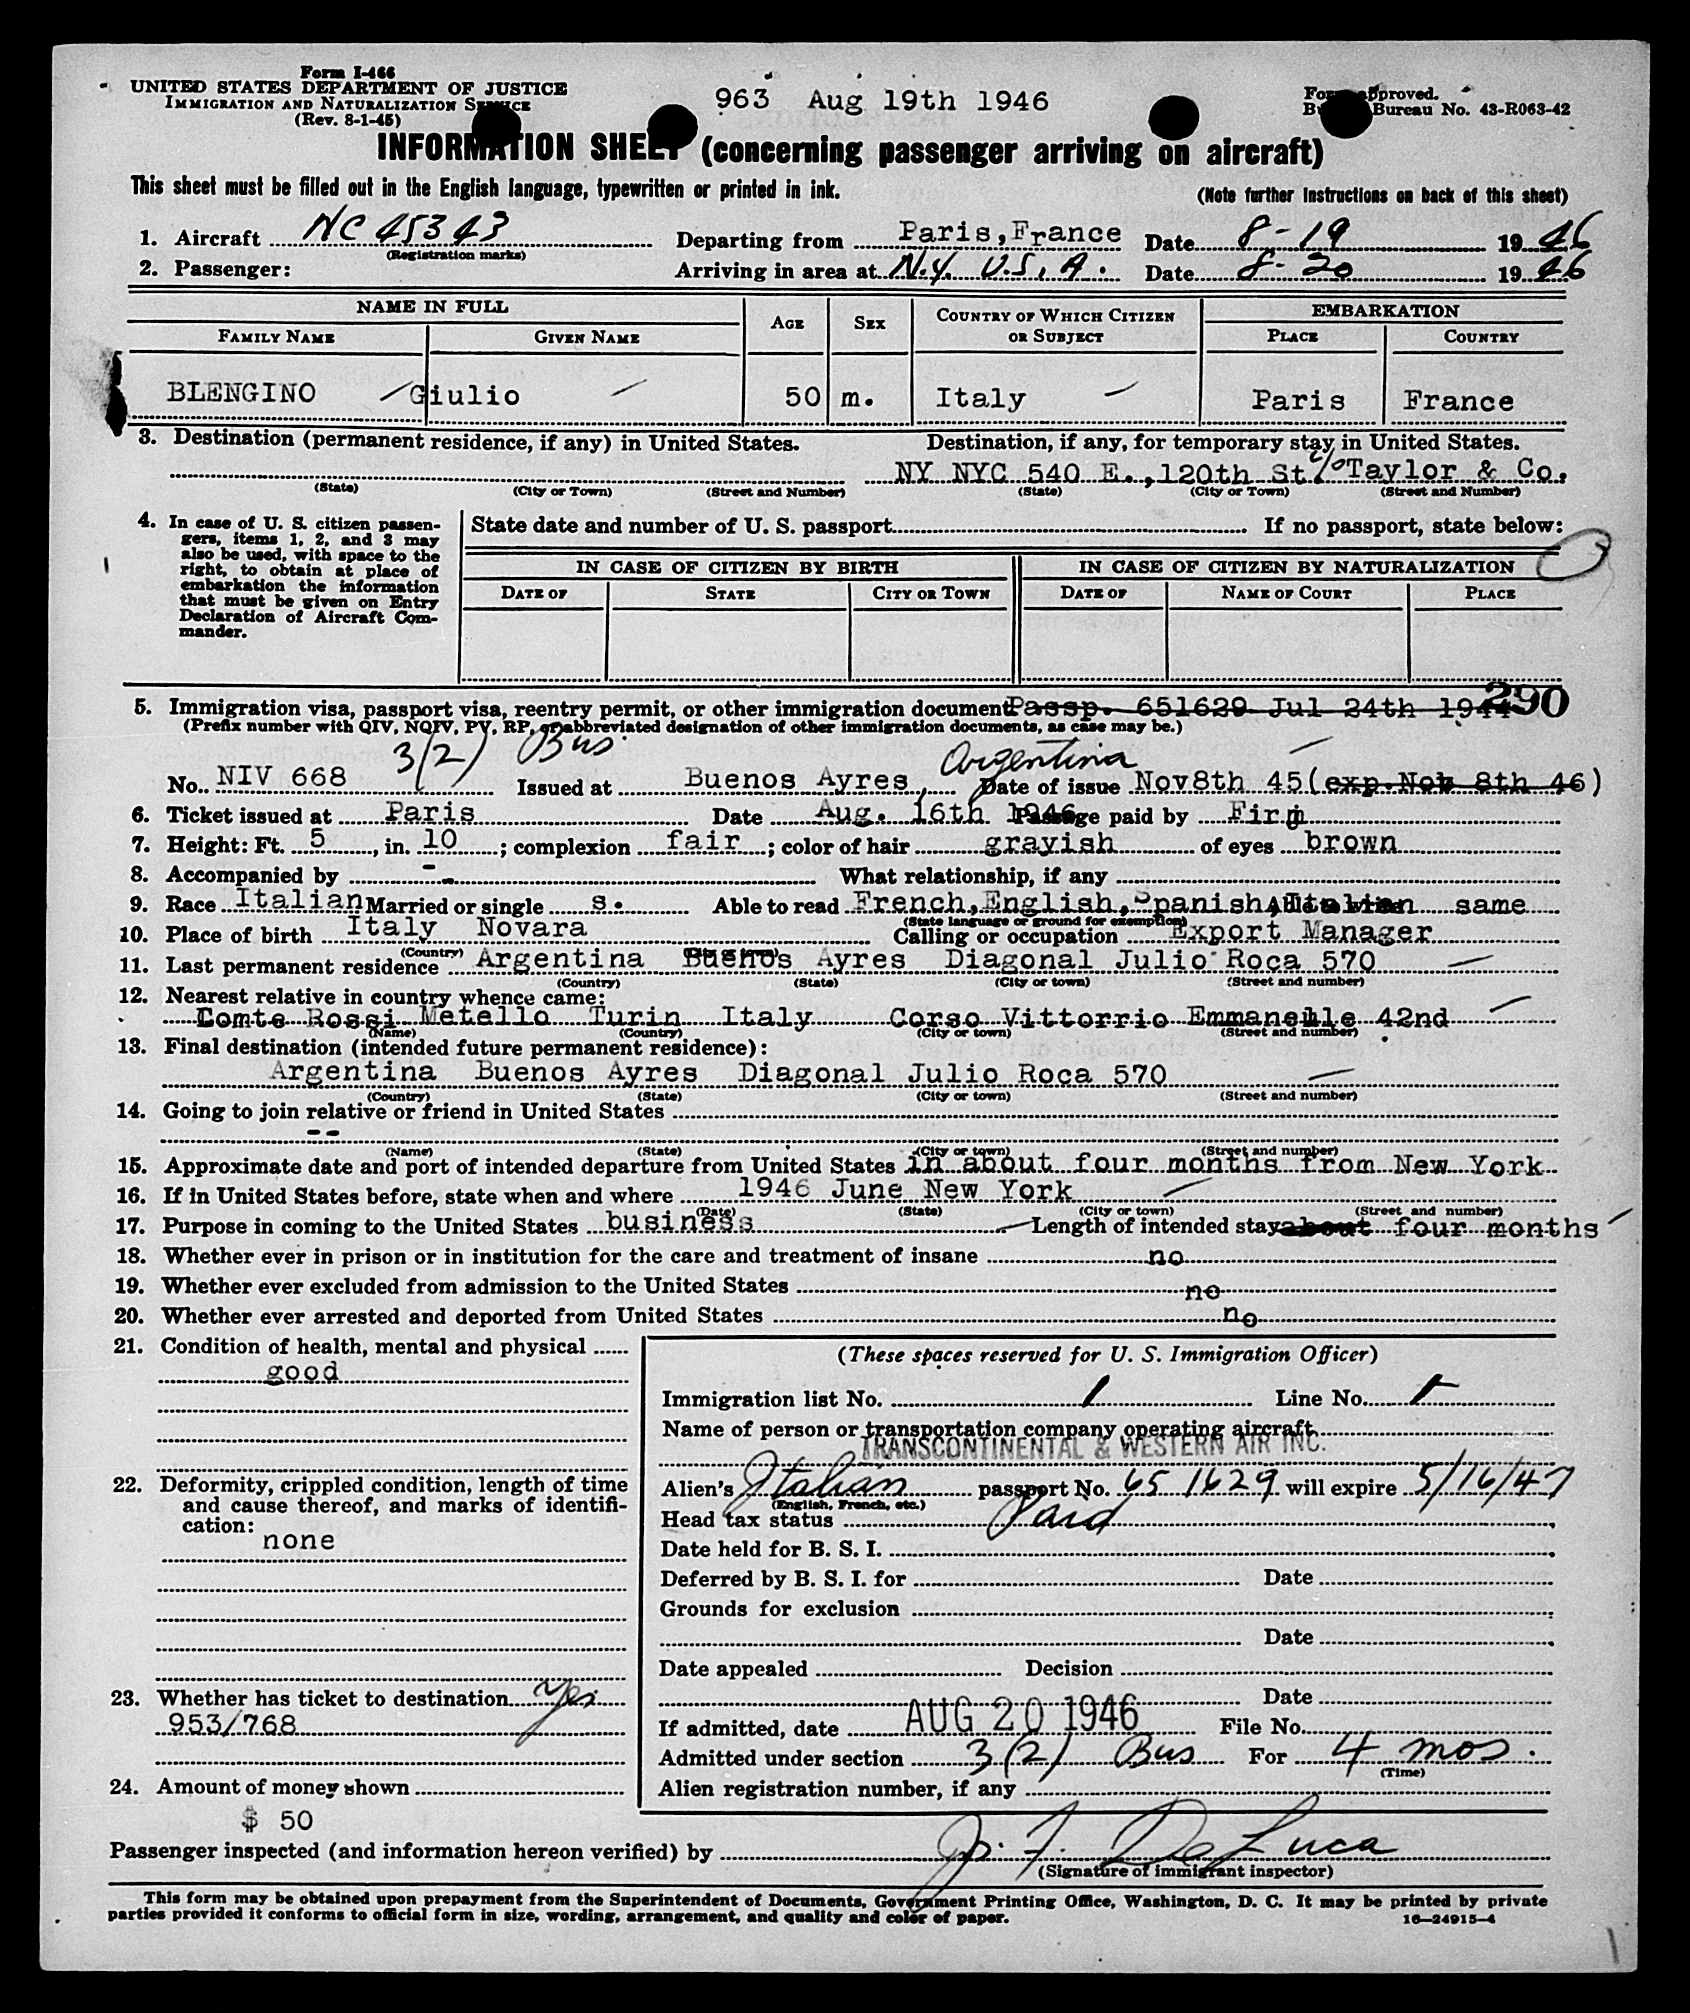 Form I-466
UNITED STATES DEPARTMENT OF JUSTICE
IMMIGRATION AND NATURALIZATION SERVICE
(Rev. 8-1-45)
963 Aug 19th 1946
Form approved.
Bureau No. 43-R063-42
INFORMATION SHEET (concerning passenger arriving on aircraft)
This sheet must be filled out in the English language, typewritten or printed in ink.
(Note further instructions on back of this sheet)
1. Aircraft NC 45343 Departing from Paris, France Date 8-19 1946
(Registration marks)
2. Passenger: Arriving in area at N.Y. U.S.A. Date 8-20 1946
NAME IN FULL AGE SEX COUNTRY OF WHICH CITIZEN OR SUBJECT EMBARKATION
FAMILY NAME GIVEN NAME PLACE COUNTRY
BLENGINO Giulio 50 m. Italy Paris France
3. Destination (permanent residence, if any) in United States. Destination, if any, for temporary stay in United States.
NY NYC 540 E., 120th St c/o Taylor & Co.
(State) (City or Town) (Street and Number) (State) (City or Town) (Street and Number)
4. In case of U. S. citizen passengers, items 1, 2, and 3 may also be used, with space to the right, to obtain at place of embarkation the information that must be given on Entry Declaration of Aircraft Commander.
State date and number of U. S. passport If no passport, state below:
IN CASE OF CITIZEN BY BIRTH IN CASE OF CITIZEN BY NATURALIZATION
DATE OF STATE CITY OR TOWN DATE OF NAME OF COURT PLACE
290
5. Immigration visa, passport visa, reentry permit, or other immigration document Passp. 651629 Jul 24th 1944
(Prefix number with QIV, NQIV, PV, RP, or abbreviated designation of other immigration documents, as case may be.)
3(2) Bus. Argentina
No. NIV 668 Issued at Buenos Ayres, Date of issue Nov8th 45(exp.Nov 8th 46)
6. Ticket issued at Paris Date Aug. 16th 1946 Passage paid by Firm
7. Height: Ft. 5, in. 10; complexion fair; color of hair grayish of eyes brown
8. Accompanied by - - What relationship, if any
9. Race Italian Married or single s. Able to read French, English, Spanish, Italian same
(State language or ground for exemption)
10. Place of birth Italy Novara Calling or occupation Export Manager
(Country) (City or town)
11. Last permanent residence Argentina Buenos Ayres Diagonal Julio Roca 570
(Country) (State) (City or town) (Street and number)
12. Nearest relative in country whence came:
Comte Rossi Metello Turin Italy Corso Vittorrio Emmanelle 42nd
(Name) (Country) (City or town) (Street and number)
13. Final destination (intended future permanent residence):
Argentina Buenos Ayres Diagonal Julio Roca 570
(Country) (State) (City or town) (Street and number)
14. Going to join relative or friend in United States
--
(Name) (State) (City or town) (Street and number)
15. Approximate date and port of intended departure from United States in about four months from New York
16. If in United States before, state when and where 1946 June New York
(Date) (State) (City or town) (Street and number)
17. Purpose in coming to the United States business Length of intended stay about four months
18. Whether ever in prison or in institution for the care and treatment of insane no
19. Whether ever excluded from admission to the United States no
20. Whether ever arrested and deported from United States no
21. Condition of health, mental and physical
good
22. Deformity, crippled condition, length of time and cause thereof, and marks of identification:
none
23. Whether has ticket to destination yes
953/768
24. Amount of money shown
$ 50
(These spaces reserved for U. S. Immigration Officer)
Immigration list No. 1 Line No.
Name of person or transportation company operating aircraft
TRANSCONTINENTAL & WESTERN AIR INC.
Alien's Italian passport No. 651629 will expire 5/16/47
(English, French, etc.)
Head tax status Paid
Date held for B. S. I.
Deferred by B. S. I. for Date
Grounds for exclusion
Date
Date appealed Decision
Date
If admitted, date AUG 20 1946 File No.
Admitted under section 3(2) Bus For 4 mos.
(Time)
Alien registration number, if any
Passenger inspected (and information hereon verified) by J. F. De Luca
(Signature of immigrant inspector)
This form may be obtained upon prepayment from the Superintendent of Documents, Government Printing Office, Washington, D. C. It may be printed by private
parties provided it conforms to official form in size, wording, arrangement, and quality and color of paper.
16—24915-4